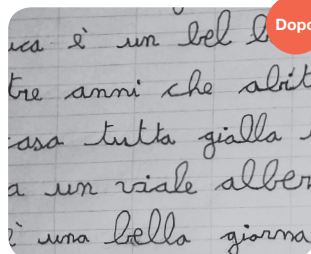 Dopo
uca è un bel b
tre anni che abit
casa tutta gialla
a un viale alber
è una bella giorna